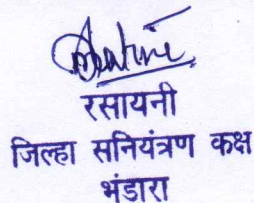 रसायनी
जिल्हा सनियंत्रण कक्ष
भंडारा